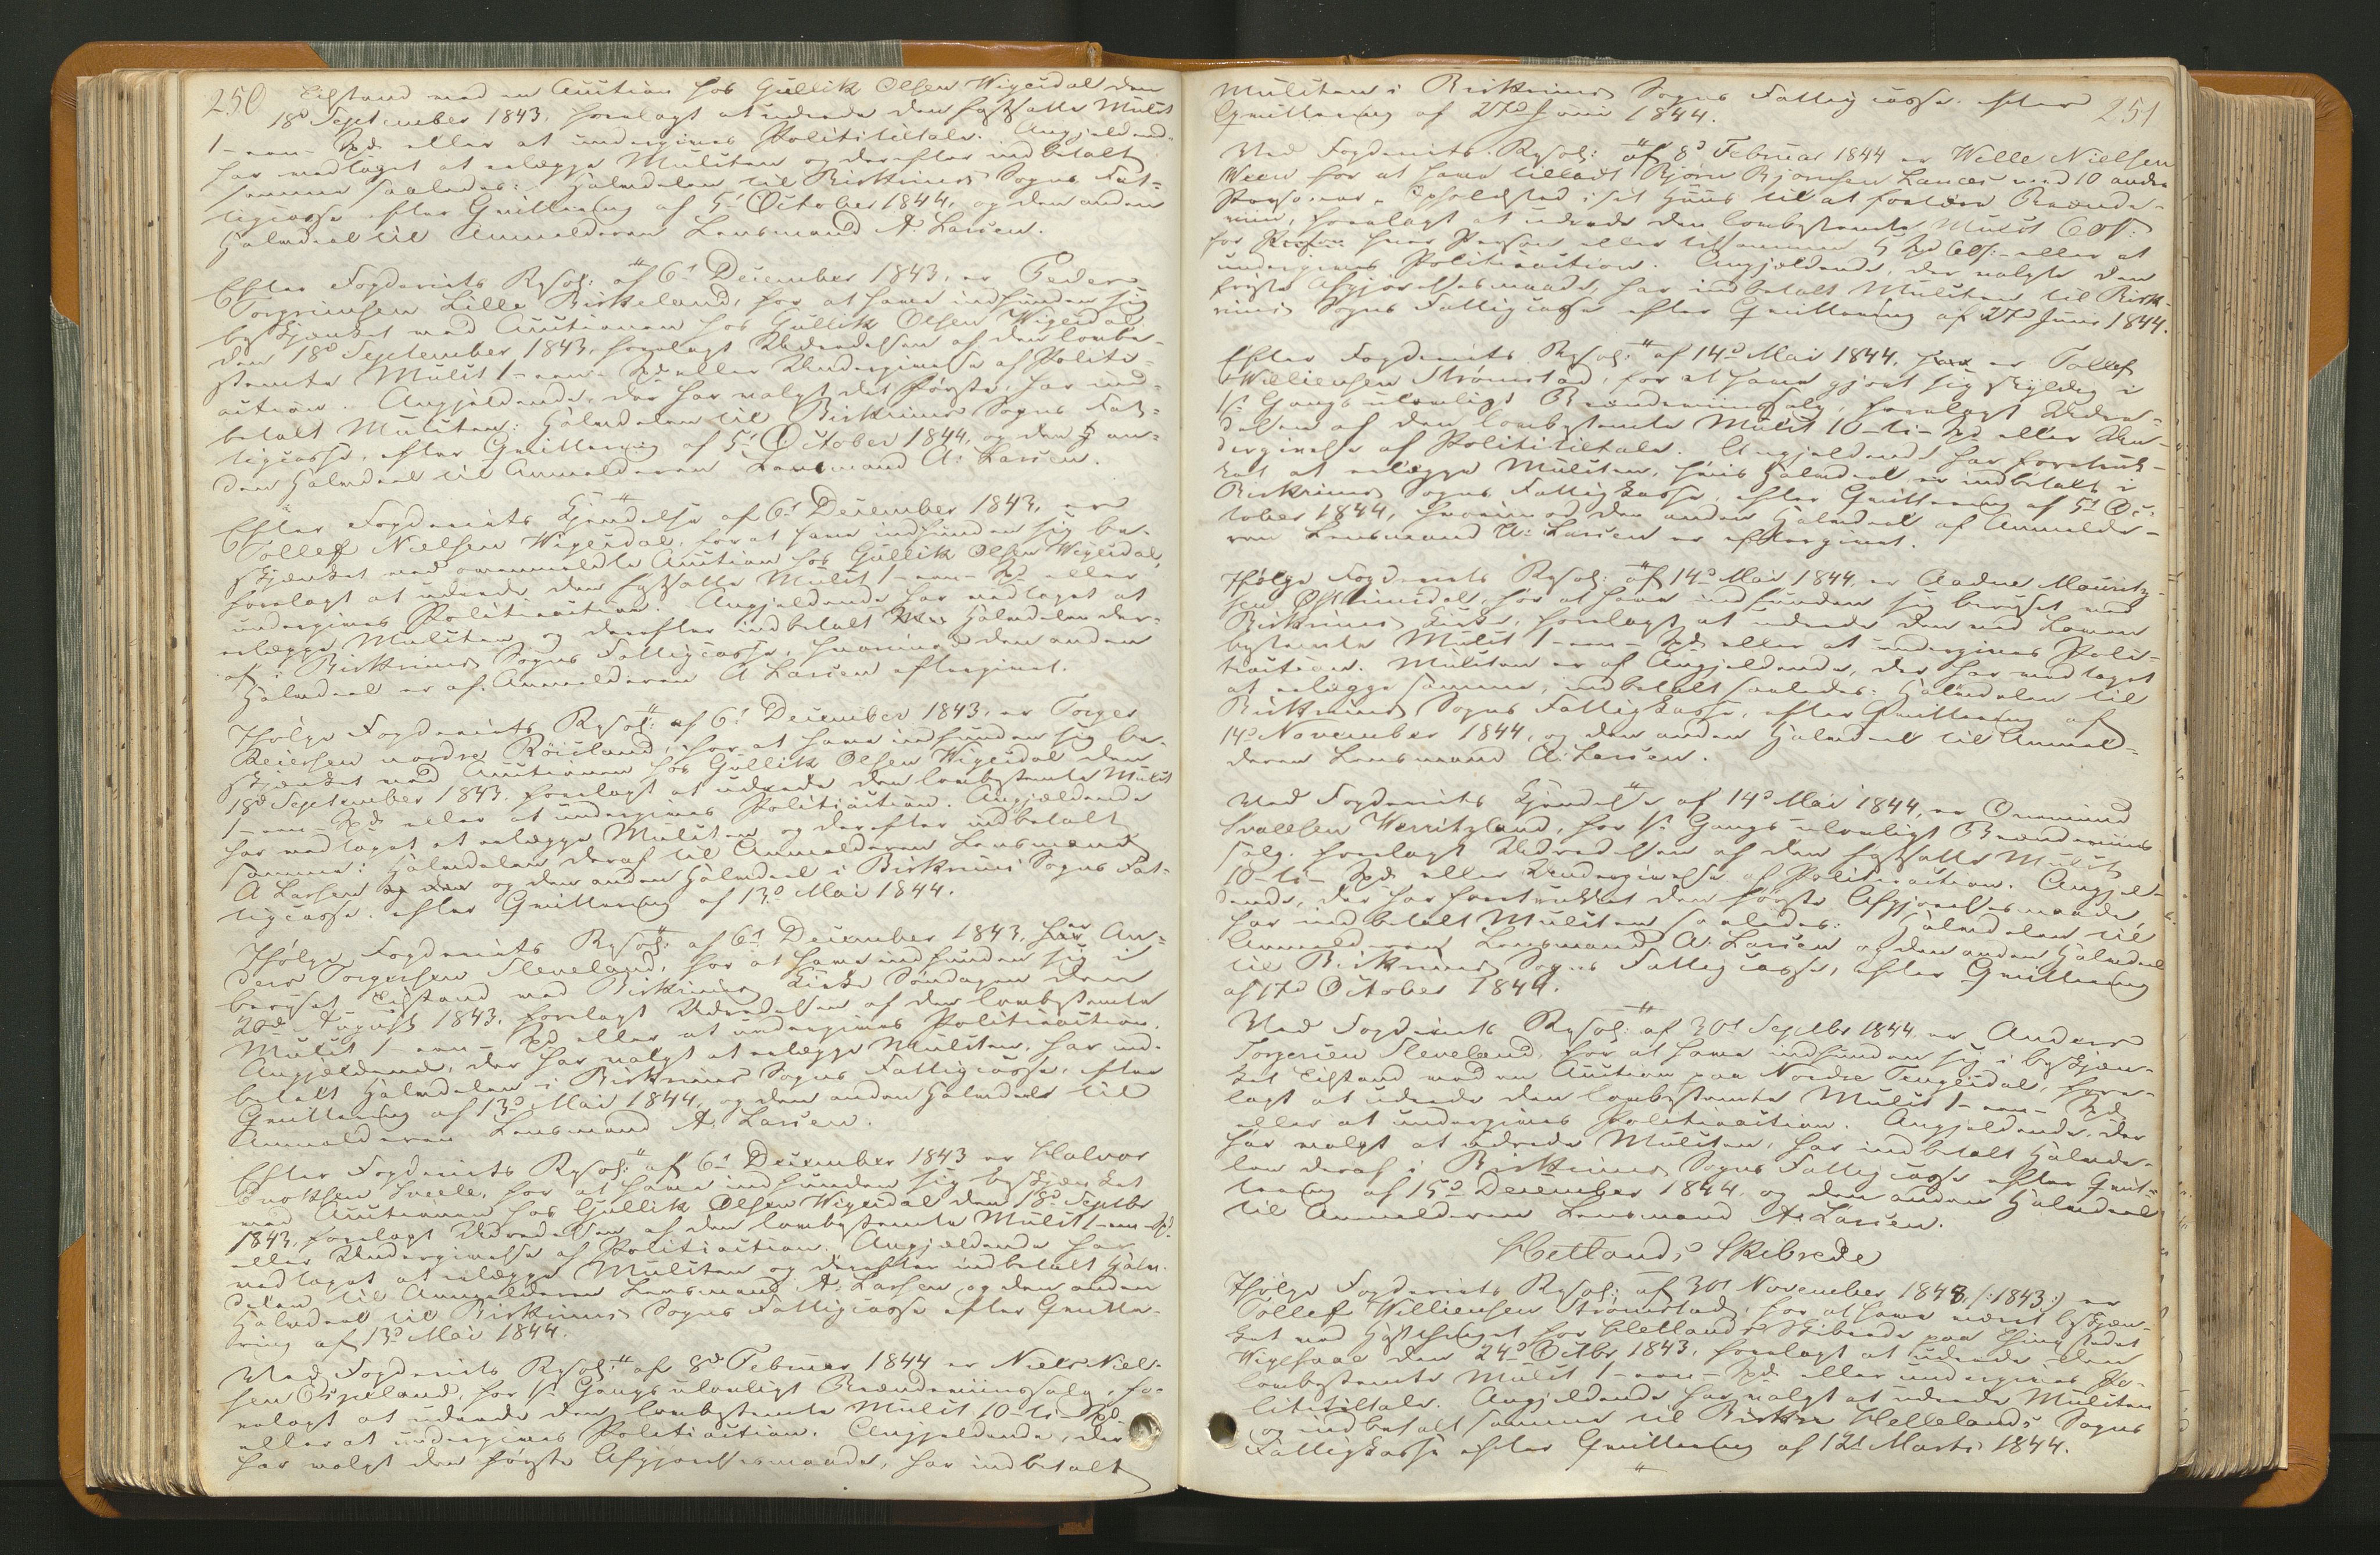 250
Tilstand ved en Auction hos Gullik Olsen Wigeidal den
18d September 1843, forelagt at udrede den fastsatte Mulct
1 – een – Spd eller at undergives Polititiltale. Angjeldende
har vedtaget at erlægge Mulcten og derefter indbetalt
samme saaledes: Halvdelen til Birkrims Sogns Fat-
tigcasse efter Qvittering af 5t October 1844, og den anden
Halvdeel til Anmelderen Lensmand A. Larsen.
Efter Fogderiets Resol: af 6t December 1843, er Peder
Torgrimsen Lille Birkeland, for at have indfunden sig
beskjænket ved Auctionen hos Gullik Olsen Wigeidal
den 18d September 1843, forelagt Udredelsen af den lovbe-
stemte Mulct 1 – een – Spd eller Undergivelse af Politi-
action. Angjeldende, der har valgt det første, har ind-
betalt Mulcten: Halvdelen til Birkrims Sogns Fat-
tigcasse, efter Qvittering af 5t October 1844, og den an-
den Halvdeel til Anmelderen Lensmand A. Larsen.
Efter Fogderiets Kjendelse af 6t December 1843, er
Tollef Nielsen Wigeidal, for at have indfunden sig be-
skjænket ved ovenmeldte Auction hos Gullik Olsen Wigeidal,
forelagt at udrede den fastsatte Mulct 1 – een – Spd eller
undergives Politiaction. Angjeldende har vedtaget at
erlægge Mulcten og derefter indbetalt Halvdelen der-
af i Birkrims Sogns Fattigcasse, hvorimod den anden
Halvdeel er af Anmelderen A Larsen eftergivet.
Ifølge Fogderiets Resol: af 6t December 1843, er Torger
Reiersen nordre Røiseland, for at have indfunden sig be-
skjænket ved Auctionen hos Gullik Olsen Wigeidal den
18d September 1843, forelagt at udrede den lovbestemte Mulct
1 – een – Spd eller at undergives Politiaction. Angjeldende
har vedtaget at erlægge Mulcten og derefter indbetalt
samme: Halvdelen deraf til Anmelderen Lensmand
A Larsen og den og den anden Halvdeel i Birkrims Sogns Fat-
tigcasse, efter Qvittering af 13d Mai 1844.
Ifølge Fogderiets Resol: af 6t December 1843, har er An-
ders Torgersen Sleveland, for at have indfunden sig i
beruset Tilstand ved Birkrims Kirke Søndagen den
20d August 1843, forelagt Udredelsen af den lovbestemte
Mulct 1 – een – Spd eller at undergives Politiaction.
Angjeldende, der har valgt at erlægge Mulcten, har ind-
betalt Halvdelen i Birkrims Sogns Fattigcasse, efter
Qvittering af 13d Mai 1844, og den anden Halvdeel til
Anmelderen Lensmand A. Larsen.
Efter Fogderiets Resol: af 6t December 1843 er Halvor
Svele, for at have indfunden sig beskjænket
ved Auctionen hos Gullik Olsen Wigeidal den 18d Septbr
1843, forelagt Udredelsen af den lovbestemte Mulct 1 – een – Spd
eller Undergivelse af Politiaction. Angjældende har
vedtaget at erlægge Mulcten og derefter indbetalt Halv-
delen til Anmelderen Lensmand A. Larsen og den anden
Halvdeel til Birkrims Sogns Fattigcasse efter Qvitte-
ring af 13d Mai 1844.
Ved Fogderiets Resol: af 8d Februar 1844 er Niels Niel-
sen Espeland, for 1ste Gangs ulovligt Brændeviinssalg, fo-
relagt at udrede den lovbestemte Mulct 10 – ti – Spd
eller at undergives Politiaction. Angjeldende, der
har valgt den første Afgjørelsesmaade, har indbetalt
251
Mulcten i Birkrims Sogns Fattigcasse efter
Qvittering af 27d Juni 1844.
Ved Fogderiets Resol: af 8d Februar 1844 er Welle Nielsen
Ween for at have tilladt Bjørn Bjørnsen Lauces med 10 andre
Personer Opholdsted i sit Huus til at fortære Brænde-
viin, forelagt at udrede den lovbestemte Mulct 60 s:
for hver Person eller tilsammen 5 Spd 60 s: – eller at
undergives Politiaction. Angjældende, der valgte den
første Afgjørelsesmaade, har indbetalt Mulcten til Birk-
rims Sogns Fattigcasse efter Qvittering af 27d Juni 1844.
Efter Fogderiets Resol: af 14d Mai 1844, har er Tollef
Williensen Strømstad, for at have gjort sig skyldig i
1ste Gangs ulovligt Brændeviinssalg, forelagt Udre-
delsen af den lovbestemte Mulct 10 – ti – Spd eller Un-
dergivelse af Polititiltale. Angjeldende har foretruk-
ket at erlægge Mulcten, hvis Halvdeel er indbetalt i
Birkrims Sogns Fattigkasse, efter Qvittering af 5t Oc-
tober 1844, hvorimod den anden Halvdeel af Anmelde-
ren Lensmand A: Larsen er eftergivet.
Ifølge Fogderiets Resol: af 14d Mai 1844, er Aadne Mauritz-
sen for at have indfunden sig beruset ved
Birkrims Kirke, forelagt at udrede den ved Loven
bestemte Mulct 1 – een – Spd eller at undergives Poli-
tiaction. Mulcten er af Angjeldende, der har vedtaget
at erlægge samme, indbetalt saaledes: Halvdelen til
Birkrims Sogns Fattigkasse, efter Qvittering af
14d November 1844, og den anden Halvdeel til Anmel-
deren Lensmand A. Larsen.
Ved Fogderiets Kjendelse af 14d Mai 1844, er Ommund
Svallsen Werritzland, for 1ste Gangs ulovligt Brændeviins-
salg, forelagt Udredelsen af den fastsatte Mulct
10 – ti – Spd eller Undergivelse af Politiaction. Angjel-
dende, der har foretrukket den første Afgjørelsesmaade,
har indbetalt Mulcten saaledes: Halvdelen til
Anmelderen Lensmand A: Larsen og den anden Halvdeel
til Birkrims Sogns Fattigcasse, efter Qvittering
af 17d October 1844.
Ved Fogderiets Resol: af 30t Septbr 1844 er Anders
Torgersen Sleveland, for at have indfunden sig i beskjæn-
ket Tilstand ved en Auction paa Nordre Tengesdal, fore-
lagt at udrede den lovbestemte Mulct 1 – een – Spd
eller at undergives Politiaction. Angjeldende, der
har valgt at udrede Mulcten, har indbetalt Halvde-
len deraf i Birkrims Sogns Fattigcasse efter Qvit-
tering af 15d December 1844, og den anden Halvdeel
til Anmelderen Lensmand A. Larsen.
Hetlands Skibrede
Ifølge Fogderiets Resol: af 30t November 1848 (:1843:) er
Tollef Williensen Strømstad, for at have været beskjæn-
ket ved Høstthinget for Hetlands Skibrede paa Thingstedet
den 24d Octbr 1843, forelagt at udrede den
lovbestemte Mulct 1 – een – Spd eller undergives Po-
lititiltale. Angjeldende har valgt at udrede Mulcten
og indbetalt samme til Hellelands Sogns
Fattigkasse efter Qvittering af 12t Marts 1844.